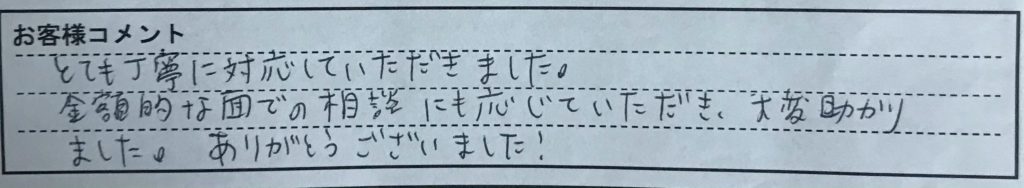 お客様コメント
とても丁寧に対応していただきました。
金額的な面での相談にも応じていただき、大変助かり
ました。ありがとうございました!